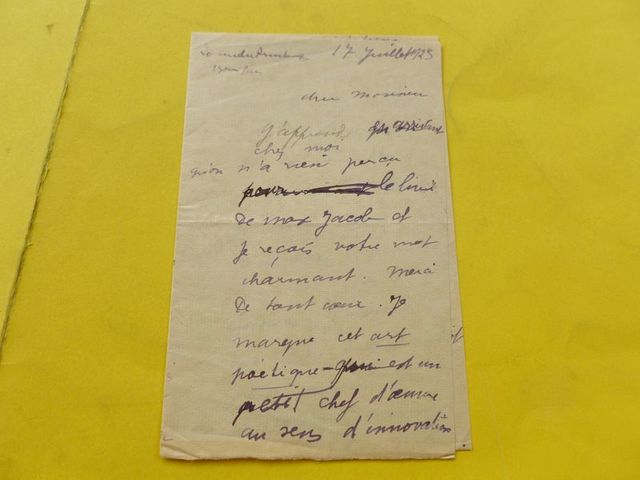 17 Juillet 1923
cher Monsieur
J'apprends en arrivant
chez moi
qu'on n'a rien perçu
pour le livre
De max Jacob et
Je reçois votre mot
charmant. Merci
De tout cœur. Je
marque cet art
poëtique - qui est un
petit chef d'œuvre
au sens d'innovation